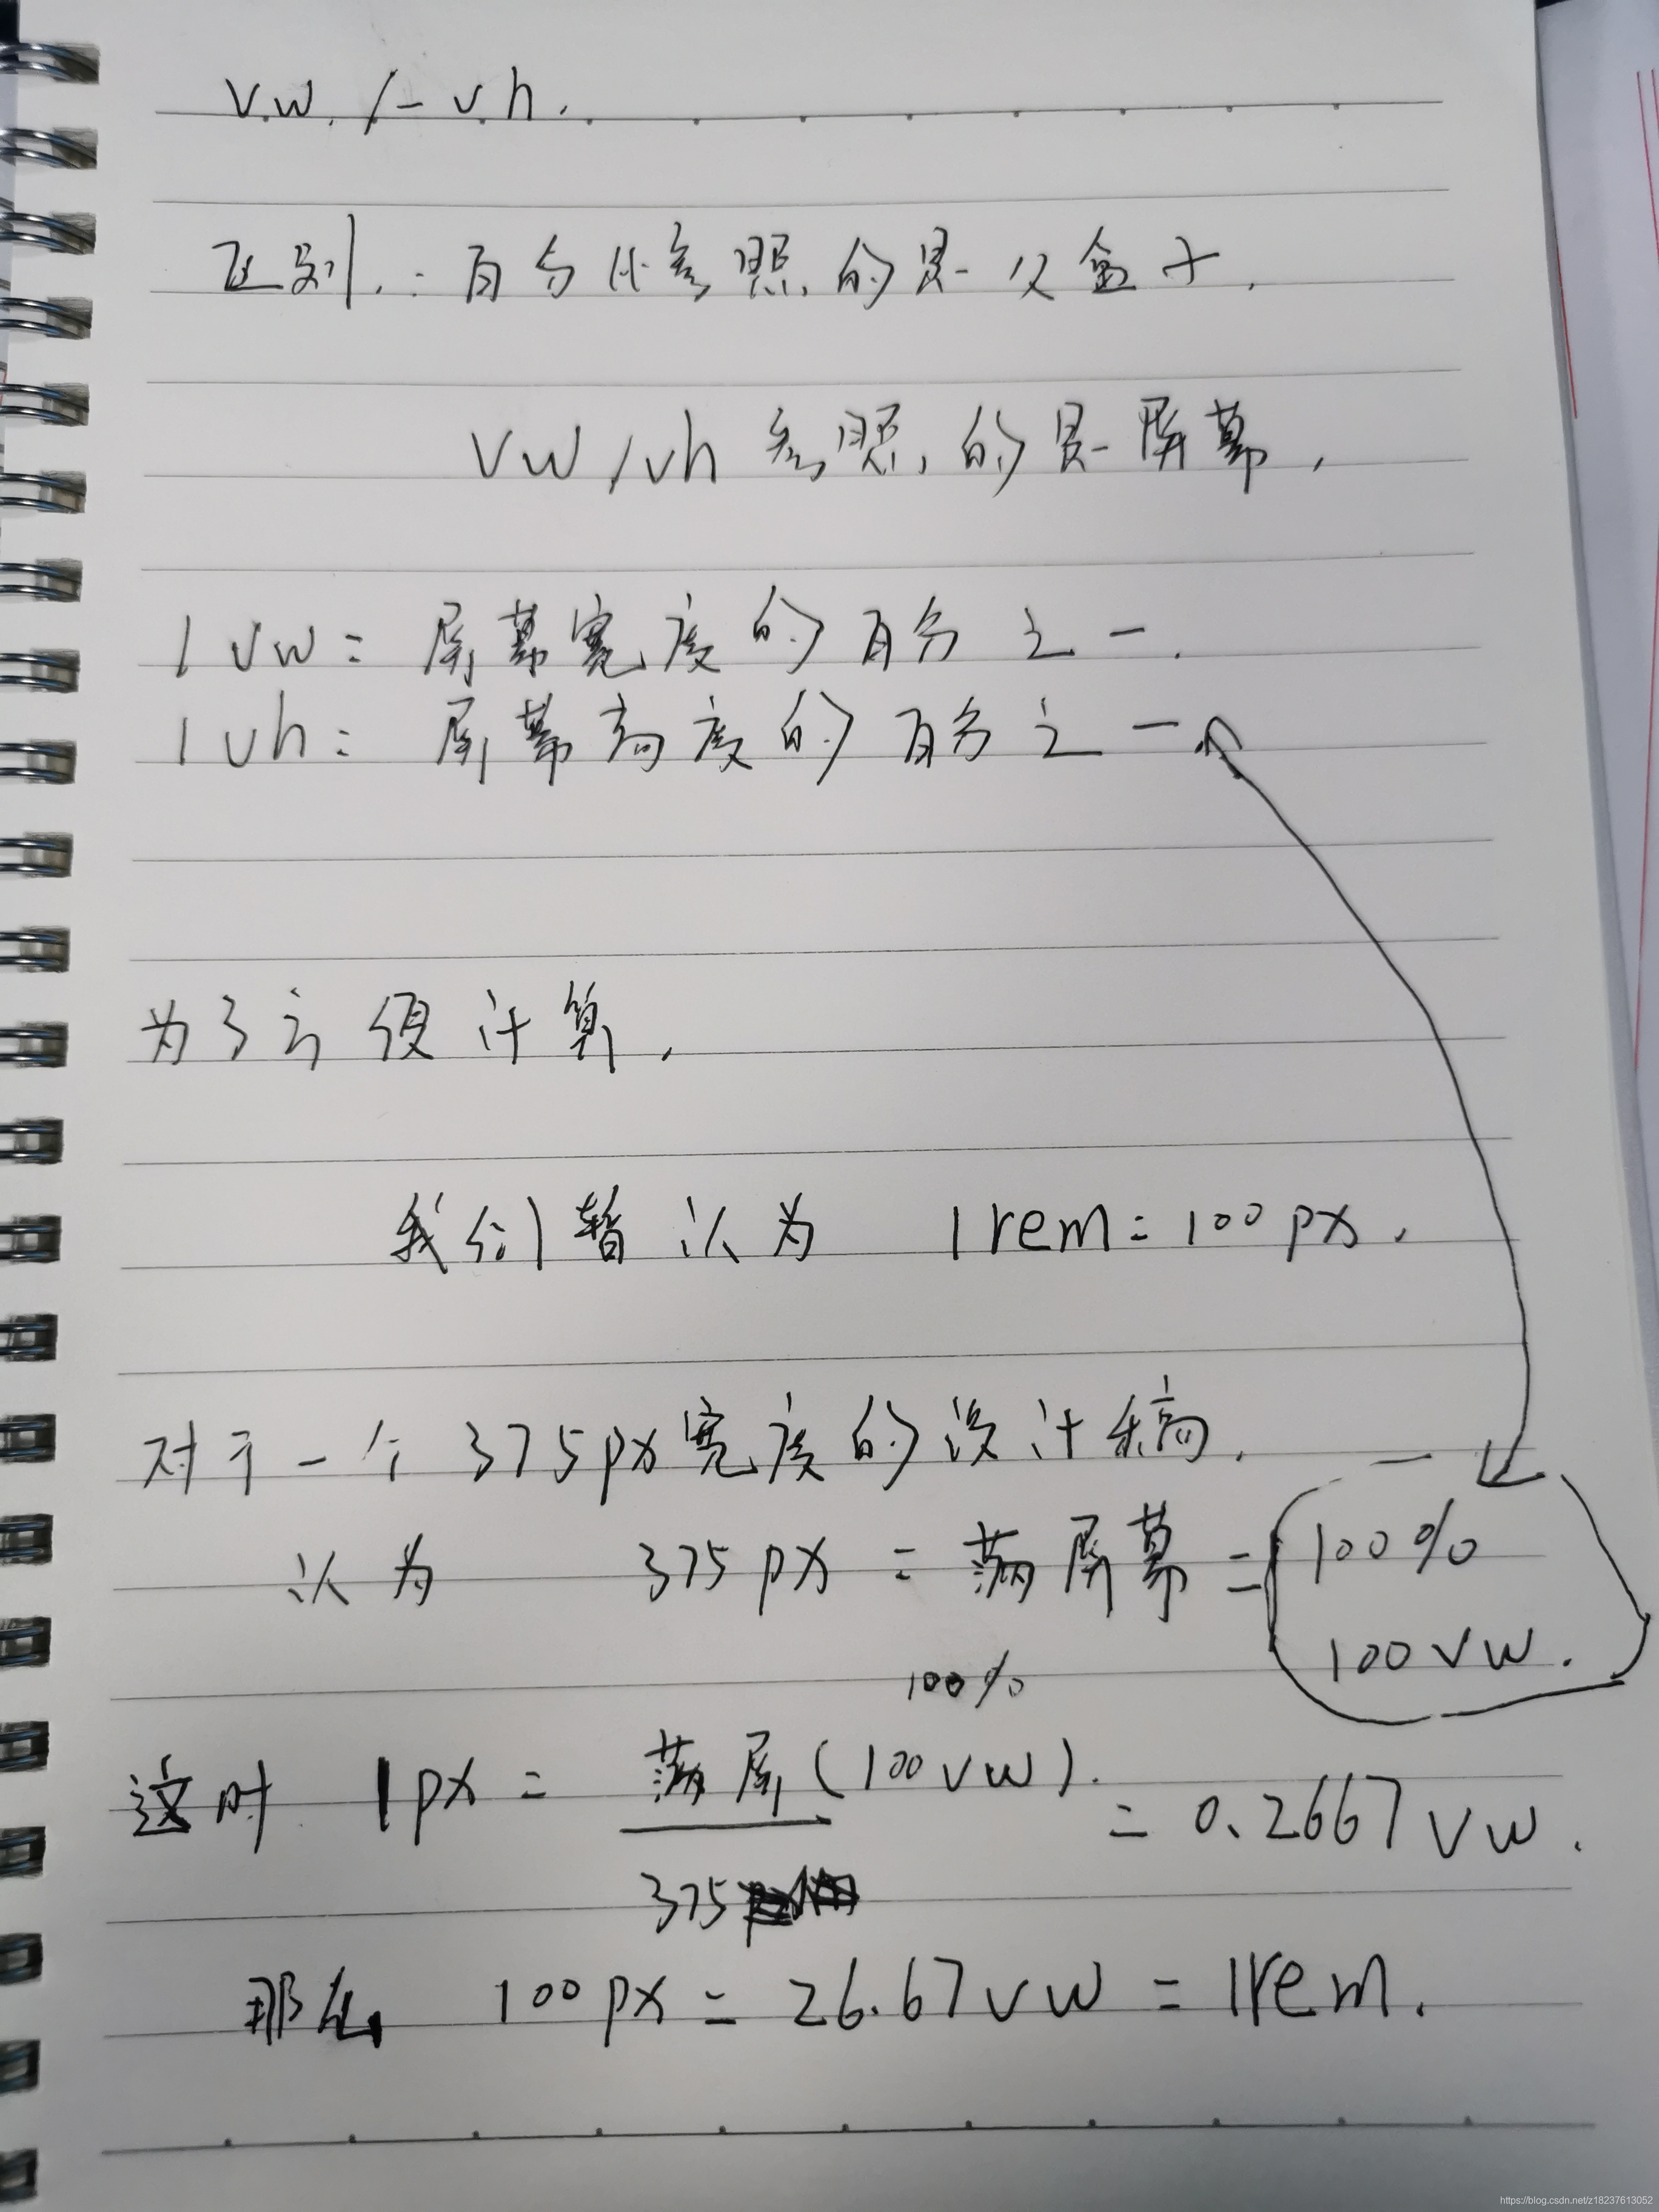 vw / vh.
区别:百分比参照的是父盒子.
vw/vh 参照的是屏幕,
1vw = 屏幕宽度的百分之一.
1vh = 屏幕高度的百分之一
为了方便计算,
我们暂认为 1rem = 100px.
对于一个375px宽度的设计稿.
认为 375px = 满屏幕 = 100%
100vw.
100%
这时 1px = 满屏(100vw). = 0.2667vw.
375
那么 100px = 26.67vw = 1rem.
https://blog.csdn.net/z18237613052